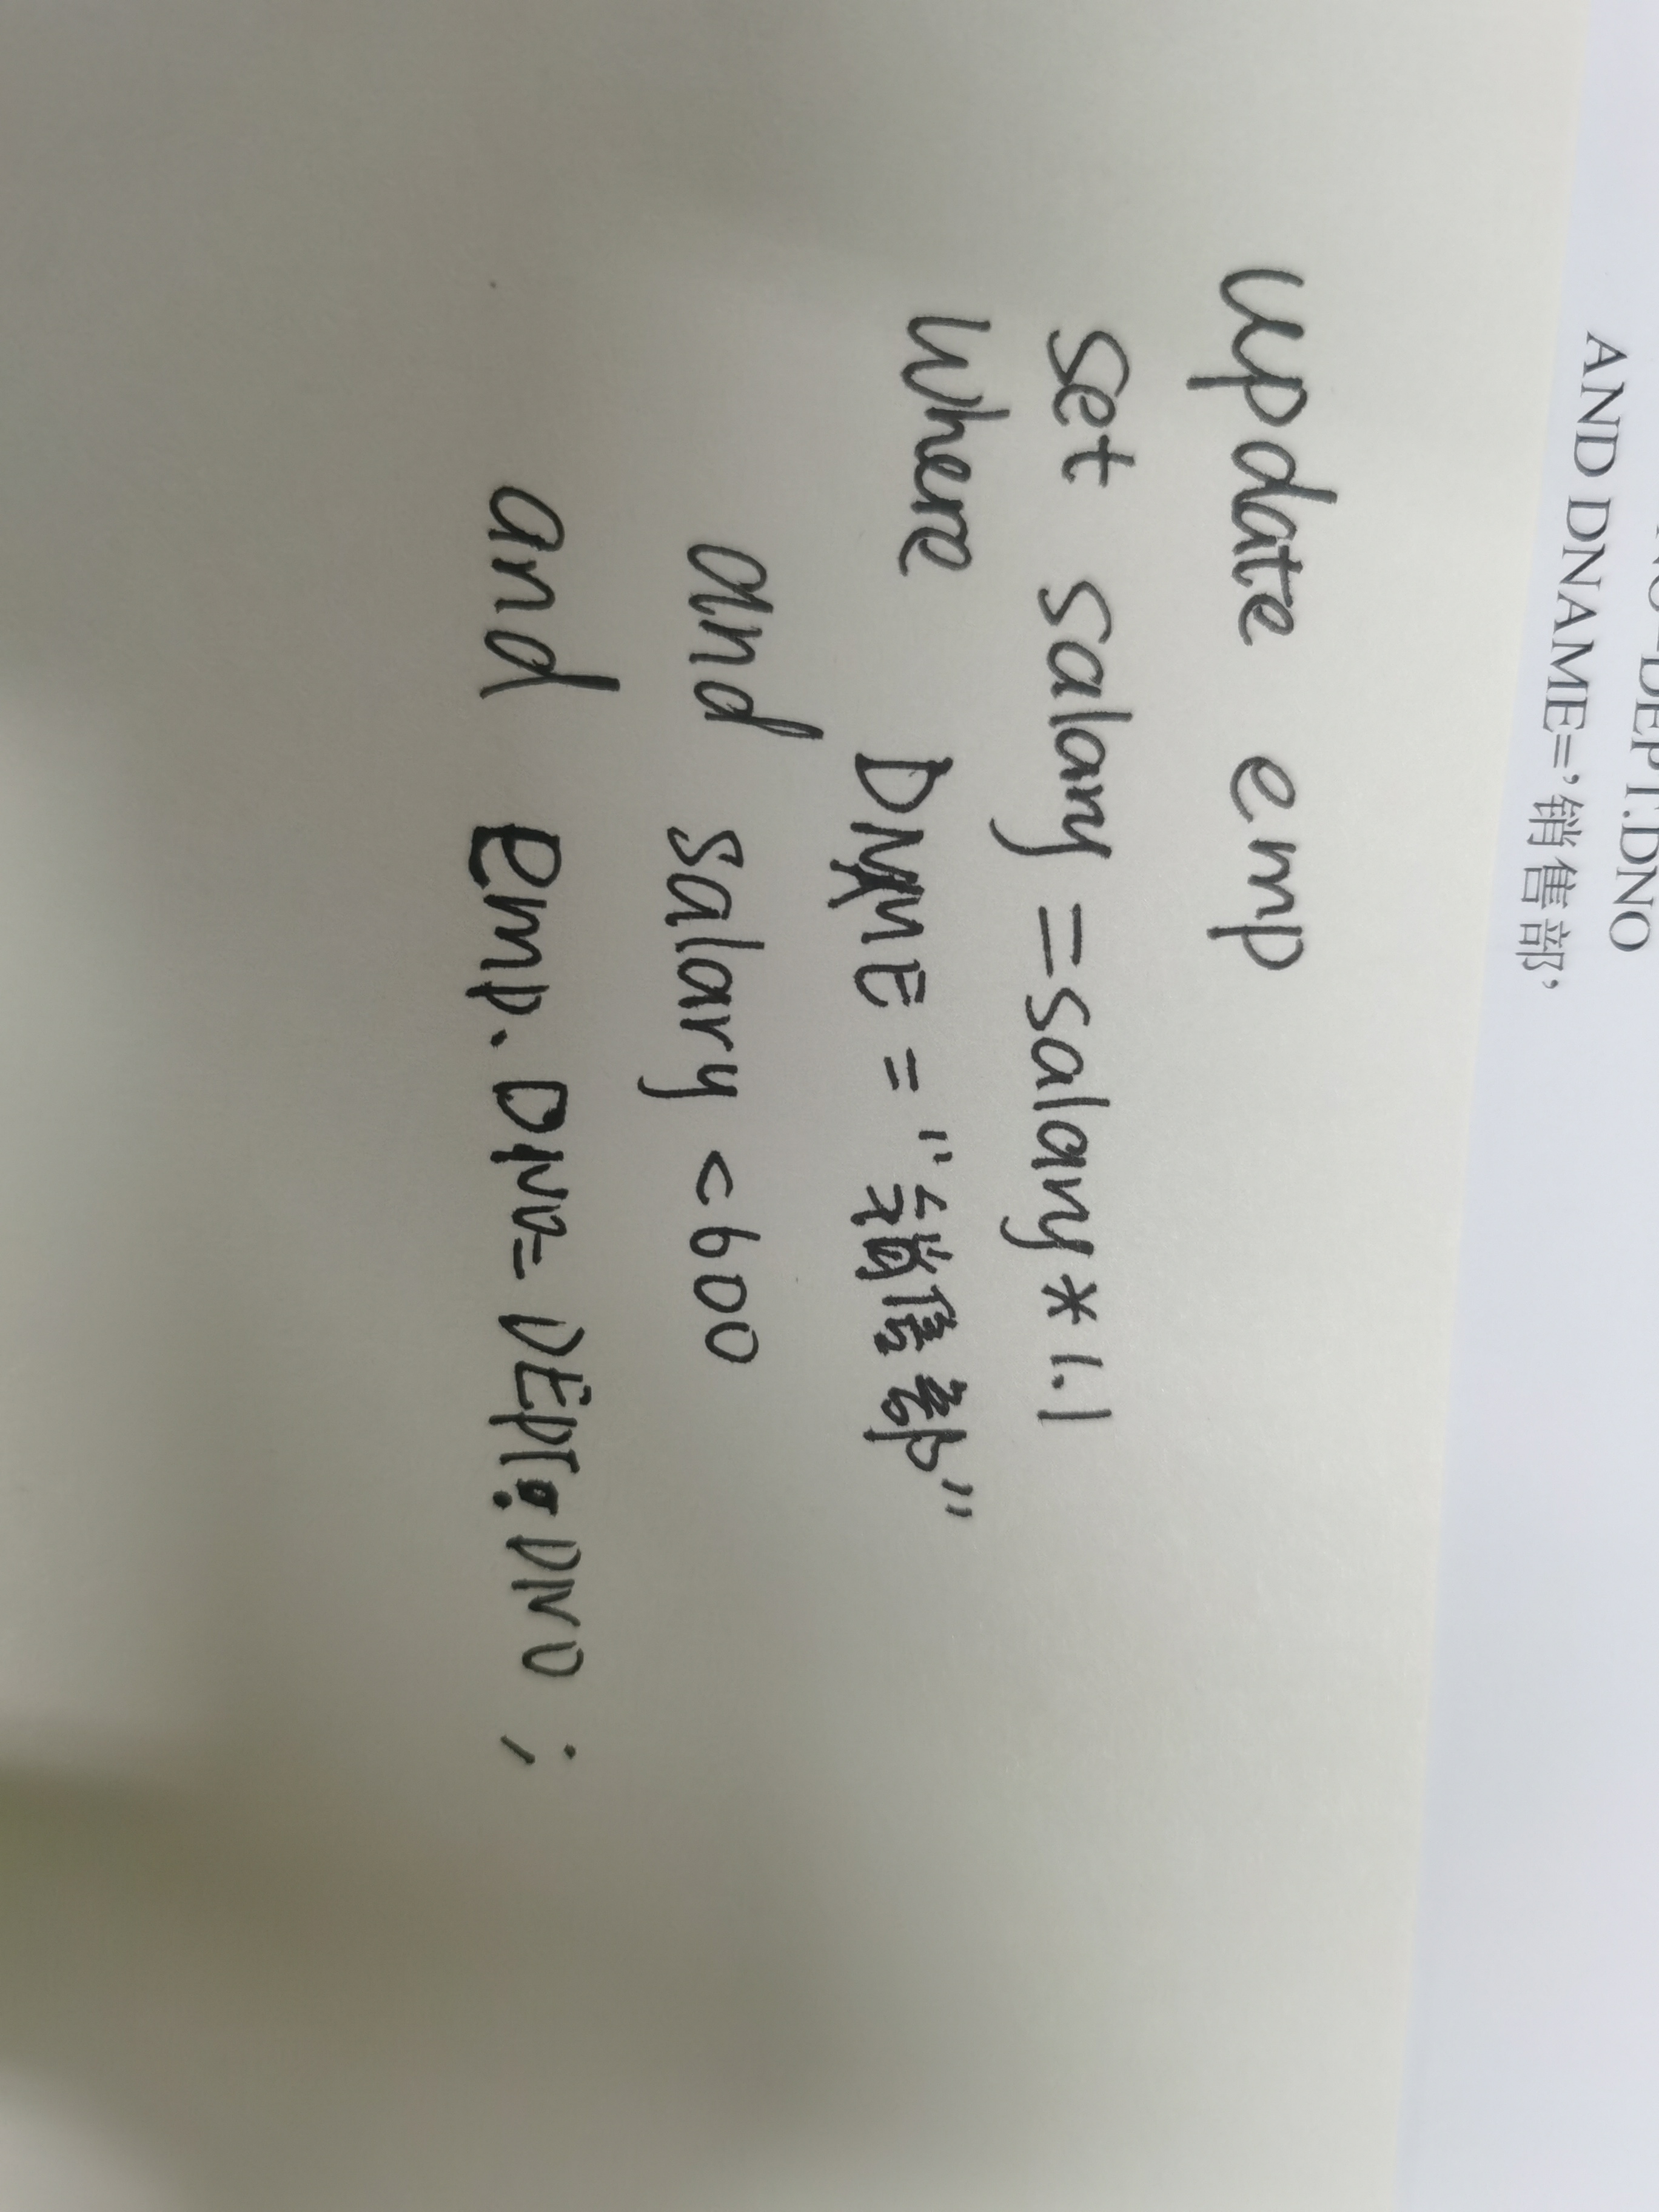 DEPT.DNO
AND DNAME='销售部'
update emp
set salary =salary*1.1
where DNAME = "销售部"
and salary <600
and emp.DNO= DEPT.DNO ;